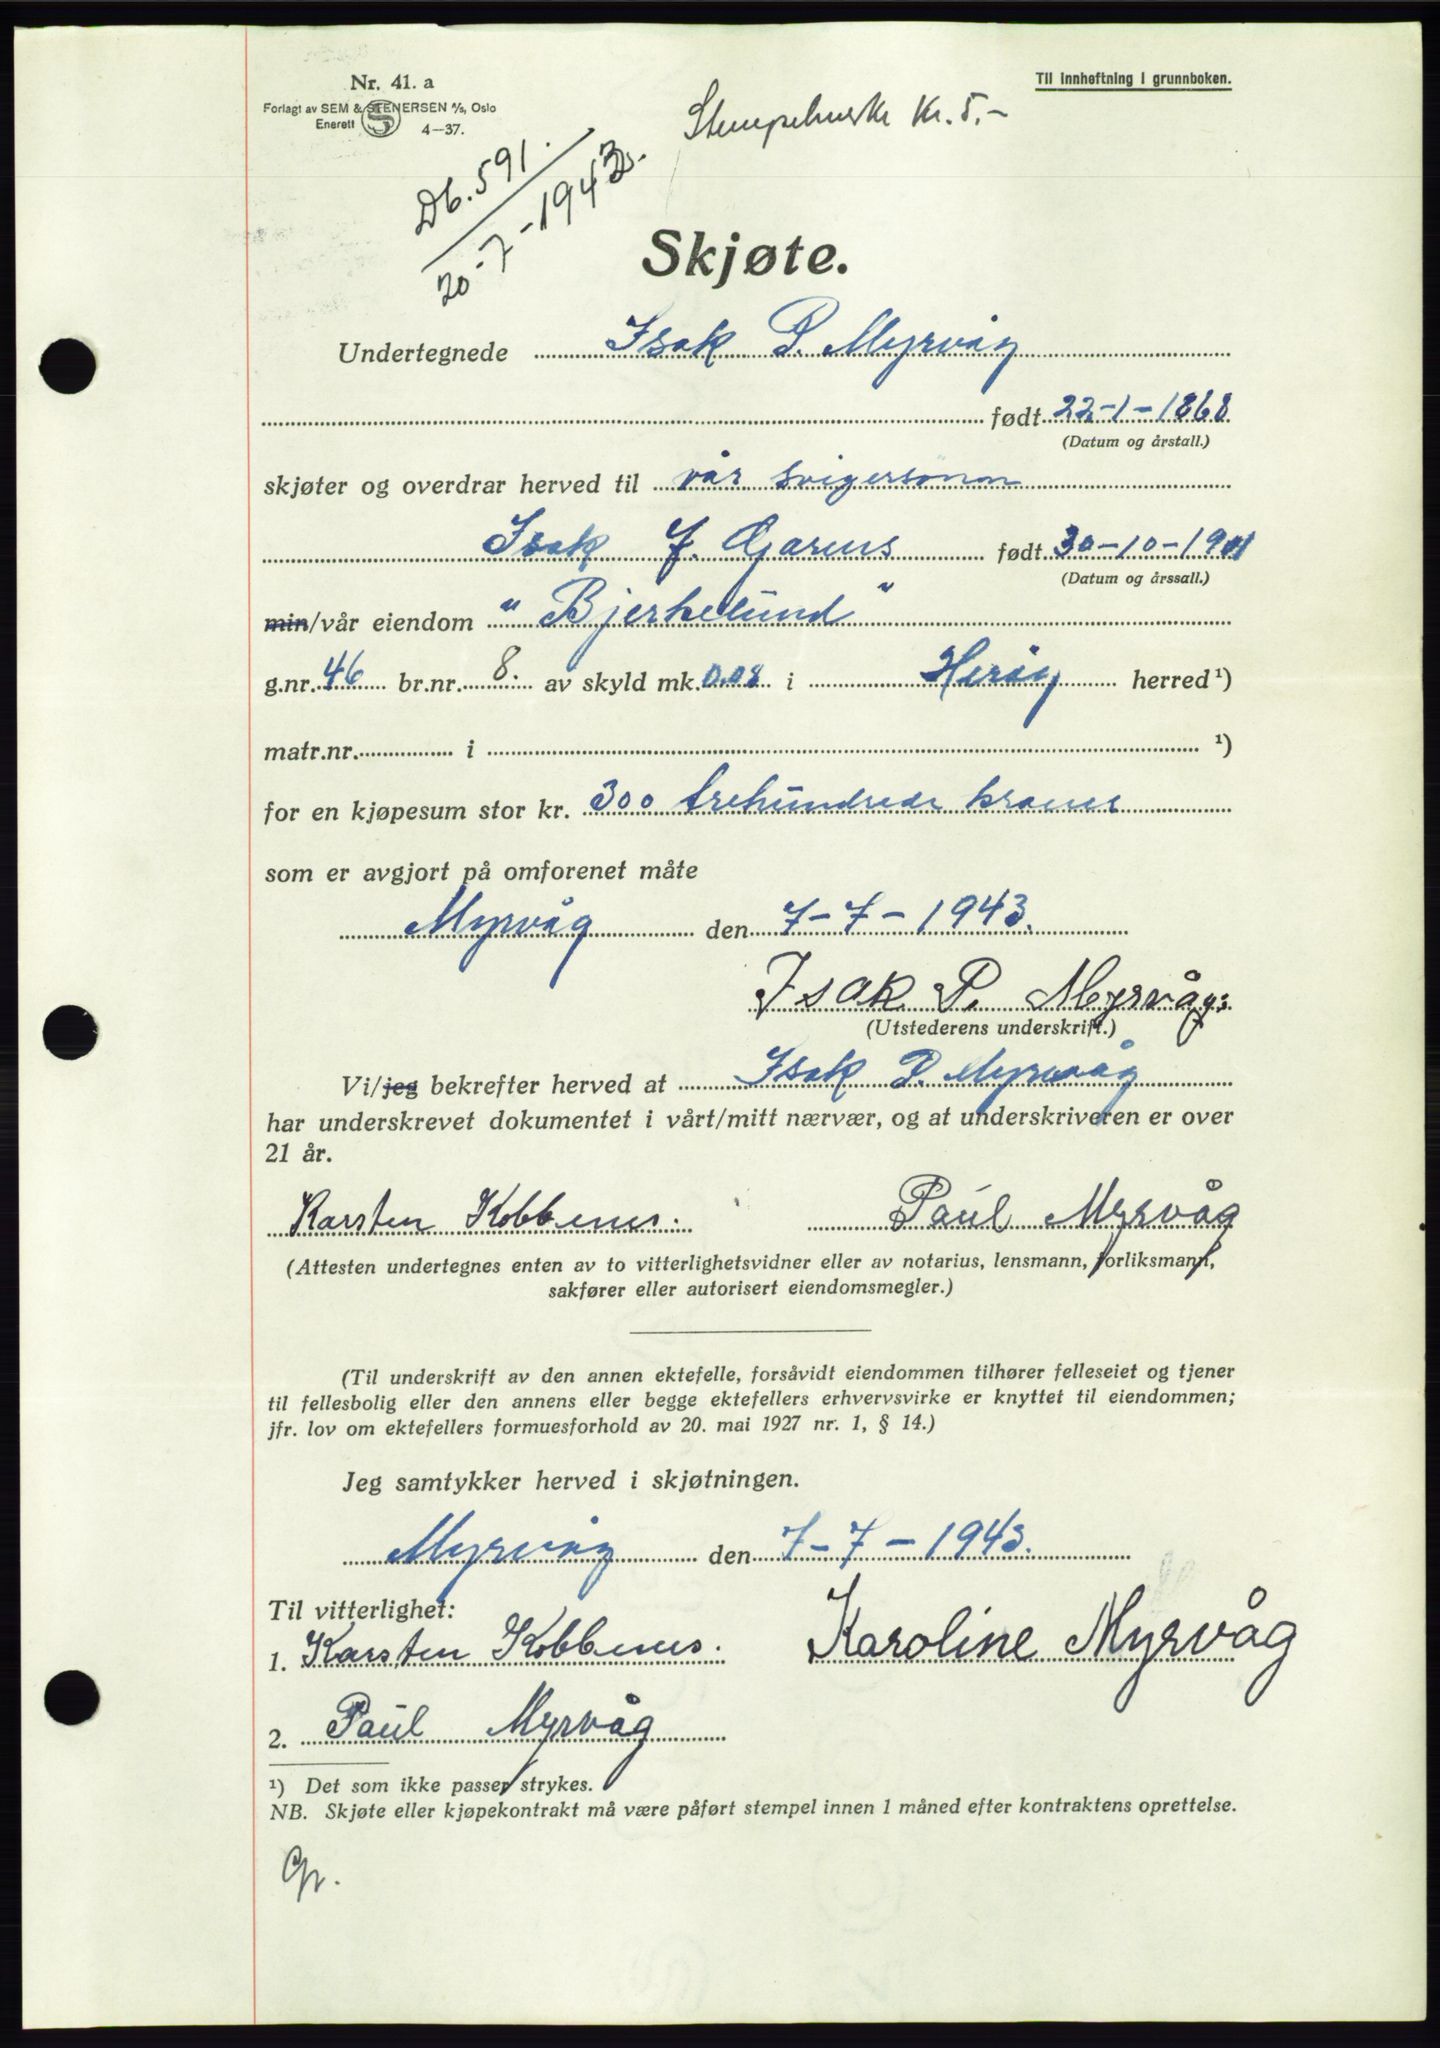 Nr. 41. a
Forlagt av SEM & STENERSEN A/S, Oslo
Enerett S 4—37.
Til innheftning i grunnboken.
Stempelmerke Kr. 5.-
Db. 591.
20-7-1943.
Skjøte.
Undertegnede Isak P. Myrvåg
født 22-1-1868
(Datum og årstall.)
skjøter og overdrar herved til vår svigersønn
Isak J. født 30-10-1901
(Datum og årssall.)
min/vår eiendom "Bjerkelund"
g.nr. 46 br.nr. 8. av skyld mk. 0.08 i Herøy herred¹)
matr.nr. i ¹)
for en kjøpesum stor kr. 300 trehundrede kroner
som er avgjort på omforenet måte
Myrvåg den 7-7-1943.
Isak P. Myrvåg
(Utstederens underskrift.)
Vi/jeg bekrefter herved at Isak P. Myrvåg
har underskrevet dokumentet i vårt/mitt nærvær, og at underskriveren er over
21 år.
Karsten Kobbenes. Paul Myrvåg
(Attesten undertegnes enten av to vitterlighetsvidner eller av notarius, lensmann, forliksmann,
sakfører eller autorisert eiendomsmegler.)
(Til underskrift av den annen ektefelle, forsåvidt eiendommen tilhører felleseiet og tjener
til fellesbolig eller den annens eller begge ektefellers erhvervsvirke er knyttet til eiendommen;
jfr. lov om ektefellers formuesforhold av 20. mai 1927 nr. 1, § 14.)
Jeg samtykker herved i skjøtningen.
Myrvåg den 7-7-1943.
Til vitterlighet:
1. Karsten Kobbenes. Karoline Myrvåg
2. Paul Myrvåg
¹) Det som ikke passer strykes.
NB. Skjøte eller kjøpekontrakt må være påført stempel innen 1 måned efter kontraktens oprettelse.